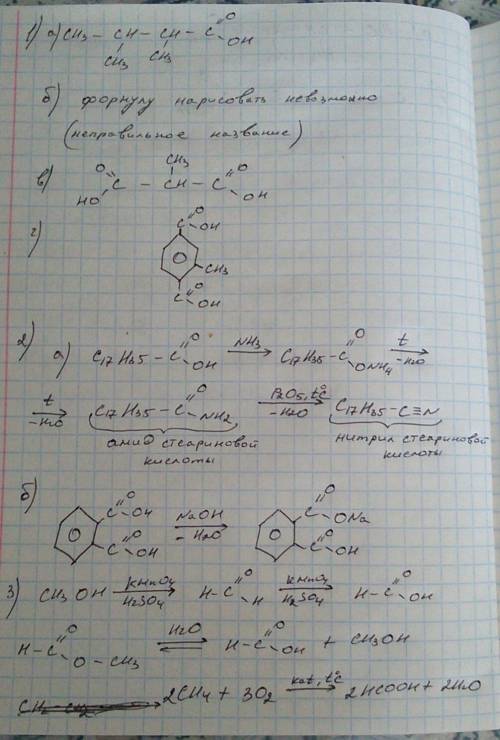 1) а) CH3 - CH - CH - C =O
OH
CH3 CH3
б) формулу нарисовать невозможно
(неправильное название)
в) O= C - CH - C =O
HO CH3 OH
г) C =O OH
CH3
C =O OH
2) а) C17H35 - C =O OH NH3 → C17H35 - C =O ONH4 t → -H2O
t → -H2O C17H35 - C =O NH2 P2O5, t°C → -H2O C17H35 - C≡N
амид стеариновой кислоты
нитрил стеариновой кислоты
б) C =O OH C =O OH NaOH → - H2O C =O ONa C =O OH
3) CH3OH KMnO4 → H2SO4 H - C =O H KMnO4 → H2SO4 H - C =O OH
H - C =O O - CH3 H2O ⇌ H - C =O OH + CH3OH
2CH4 + 3O2 kat, t°C → 2HCOOH + 2H2O